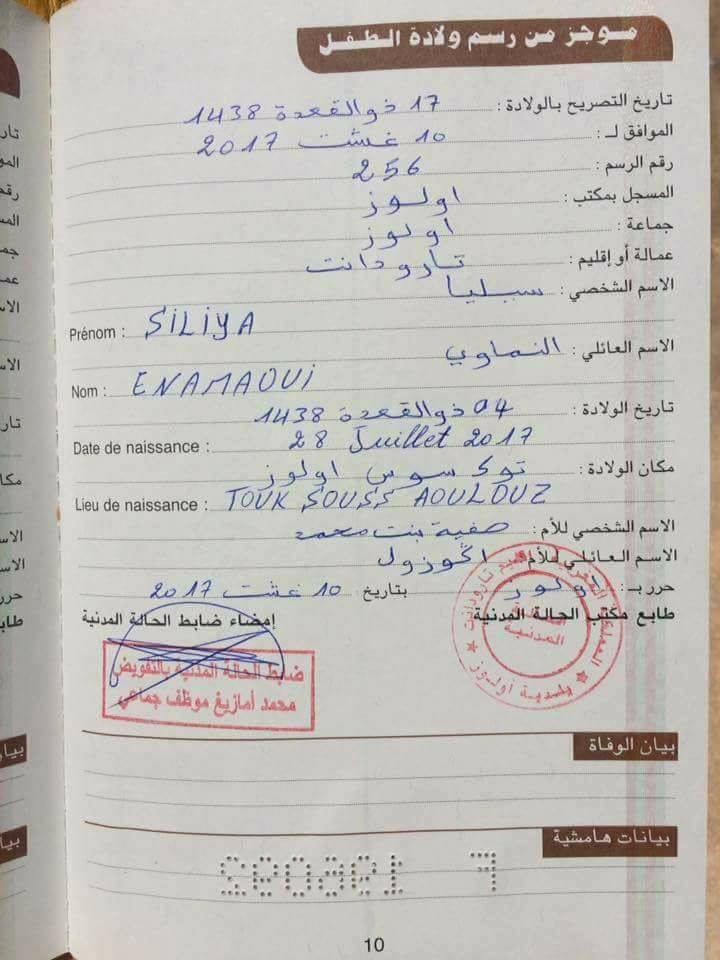 موجز من رسم ولادة الطفل
تاريخ التصريح بالولادة : 17 ذو القعدة 1438
الموافق لـ : 10 غشت 2017
رقم الرسم : 256
المسجل بمكتب : اولوز
جماعة : اولوز
عمالة أو إقليم : تارودانت
الاسم الشخصي : سيليا
Prénom : SILIYA
الاسم العائلي : النماوي
Nom : ENAMAOUI
تاريخ الولادة : 04 ذو القعدة 1438
Date de naissance : 28 Juillet 2017
مكان الولادة : توك سوس اولوز
Lieu de naissance : TOUK SOUSS AOULOUZ
الاسم الشخصي للأم : صفية بنت محمد
الاسم العائلي للأم : اڭوزول
حرر بـ : اولوز بتاريخ 10 غشت 2017
طابع مكتب الحالة المدنية إمضاء ضابط الحالة المدنية
ضابط الحالة المدنية بالتفويض
محمد أمازيغ موظف جماعي
بلدية أولوز
بيان الوفاة
بيانات هامشية
10